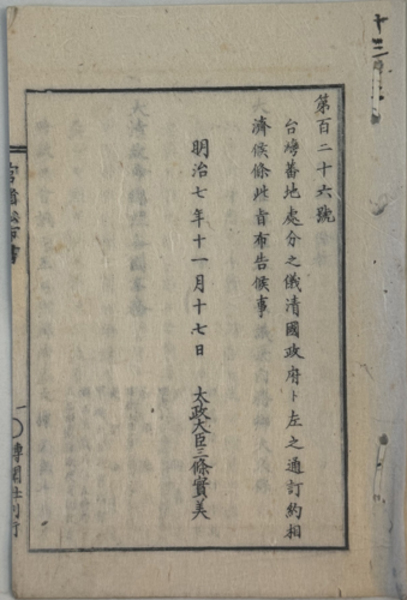 第百二十六號
台灣蕃地処分之儀清國政府ト左之通訂約相
濟候條此旨布告候事
明治七年十一月十七日
太政大臣三條實美
十三
官省
書
博聞社刊行